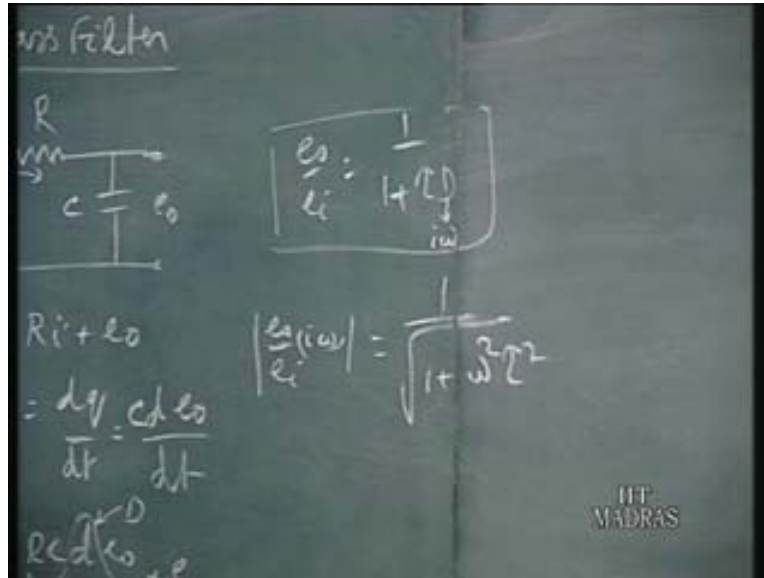 ass Filter
R
C
e₀
Ri + e₀
= dq/dt = C de₀/dt
RC d e₀
D
e₀/eᵢ = 1/(1 + τD)
iω
|e₀/eᵢ (iω)| = 1/√(1 + ω²τ²)
IIT
MADRAS